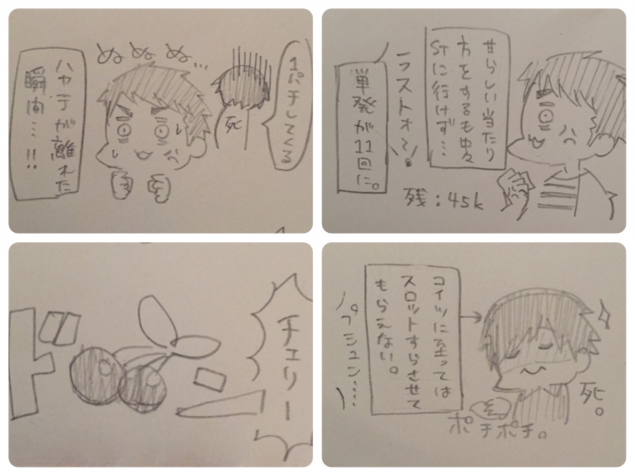 甘らしい当たり
方をするも中々
STに行けず…
ラストォ〜!
単発が11回に。
残:45k
コイツに至っては
スロットすらさせて
もらえない。
プシュン…
死。
ポチポチ。
1パチしてくる
死
ぬぬぬ…
ハヤテが離れた
瞬間…!!
チェリー
ドン